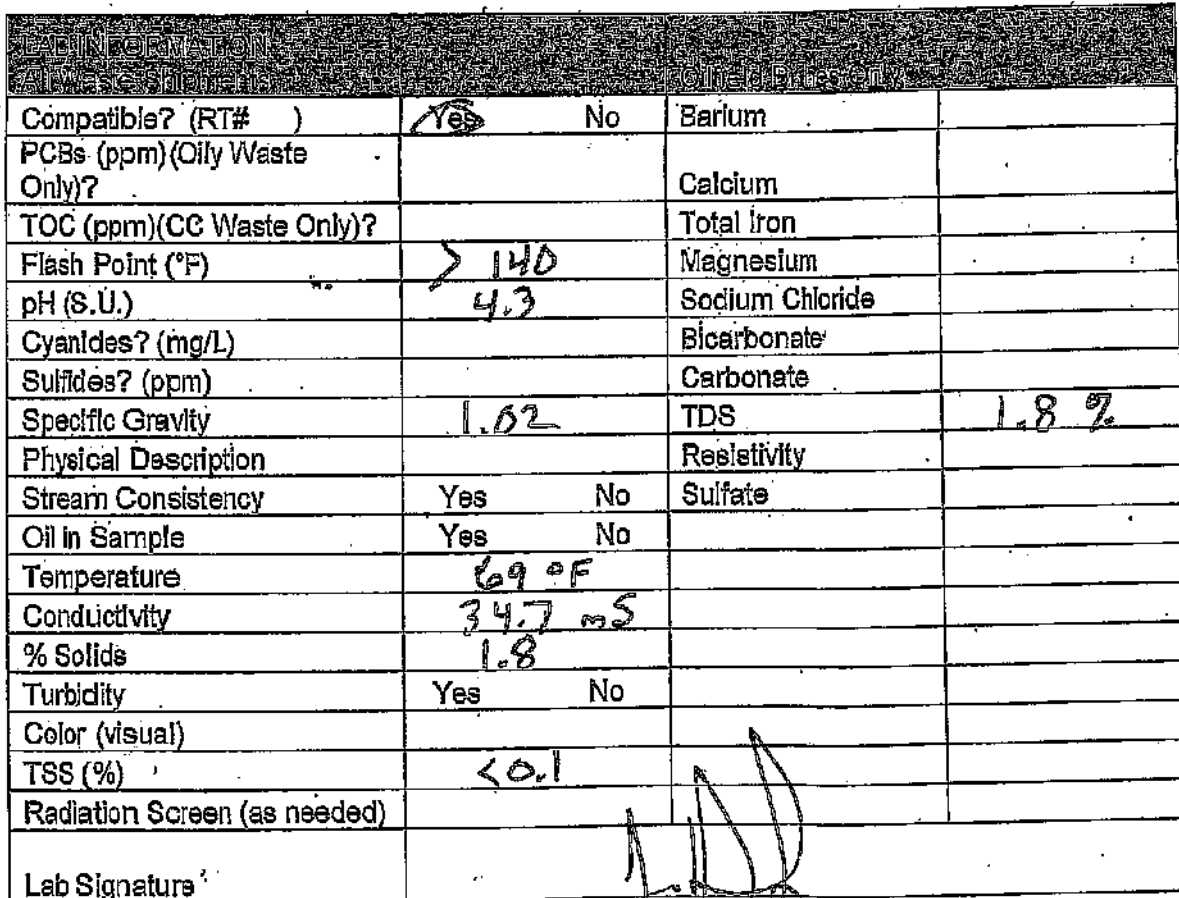 LAB INFORMATION
All Waste Shipments Oilfield Brines Only
Compatible? (RT# ) Yes No Barium
PCBs (ppm)(Oily Waste
Only)? Calcium
TOC (ppm)(CC Waste Only)? Total Iron
Flash Point (°F) > 140 Magnesium
pH (S.U.) 4.3 Sodium Chloride
Cyanides? (mg/L) Bicarbonate
Sulfides? (ppm) Carbonate
Specific Gravity 1.02 TDS 1.8 %
Physical Description Resistivity
Stream Consistency Yes No Sulfate
Oil in Sample Yes No
Temperature 69 °F
Conductivity 34.7 mS
% Solids 1.8
Turbidity Yes No
Color (visual)
TSS (%) <0.1
Radiation Screen (as needed)
Lab Signature